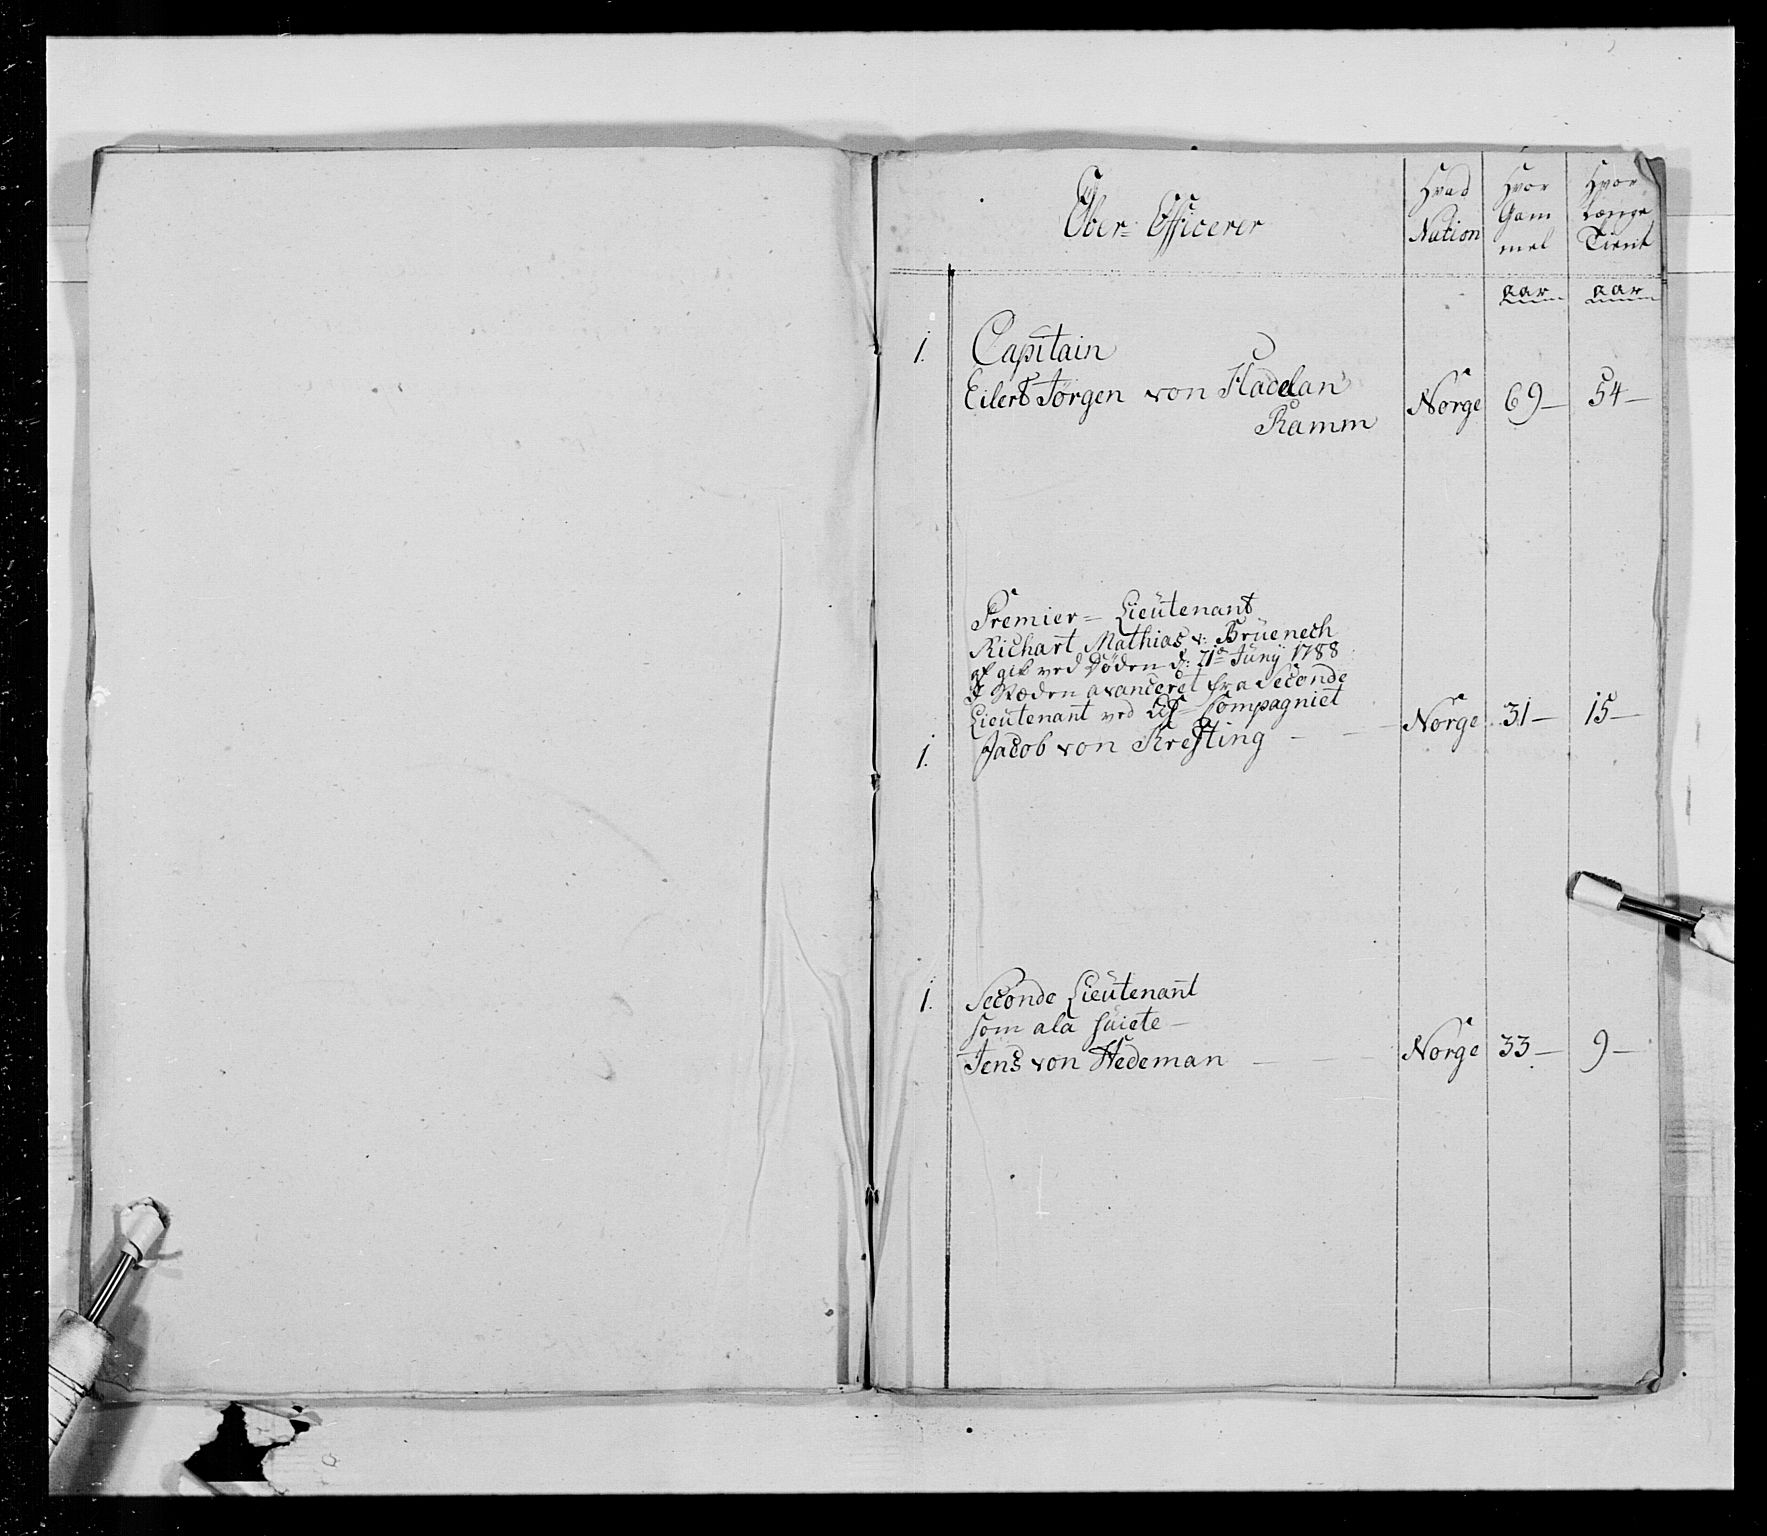 Ober- Officerer
Hvad Nation
Hvor Gam mel
Hvor Længe Tient
aar aar
1. Capitain
Eilert Jørgen von Hadelan
Ramm Norge 69 — 54 —
Premier = Lieutenant
Richart Mathias v: Brüenech
af gik ved Døden d: 21de Junÿ 1788
I Stæden avanceret fra Seconde
Lieutenant ved Compagniet
1. Jacob von Krefting — — Norge 31 — 15 —
1. Seconde Lieutenant
som ala suiete —
Jens von Hedeman — — — Norge 33 — 9 —